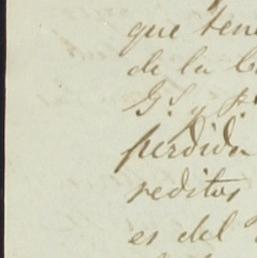 que ten
de la
G.s y
perdida
reditos
es del